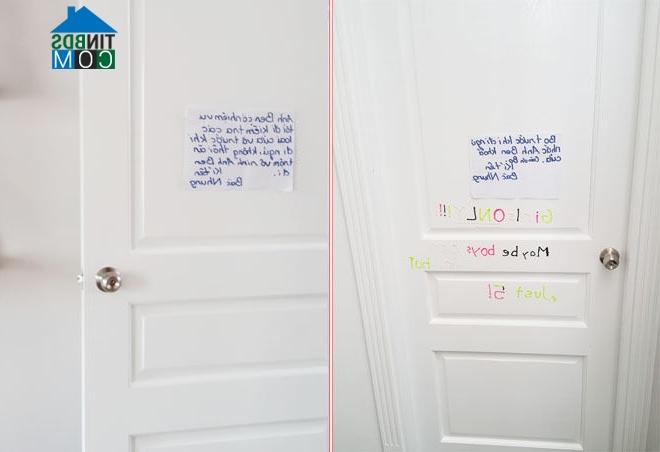 TINBDS
COM
Anh Ben có nhiệm vụ
tối đi kiểm tra các
loại cửa và trước khi
đi ngủ, không thôi ăn
trộm vô rinh Anh Ben
đi.
Kí tên
Bác Nhung
Bo trước khi đi ngủ
nhắc Anh Ben khoá
cửa.
Kí tên
Bác Nhung
ONL !!!
Maybe boys
but
Just 5!